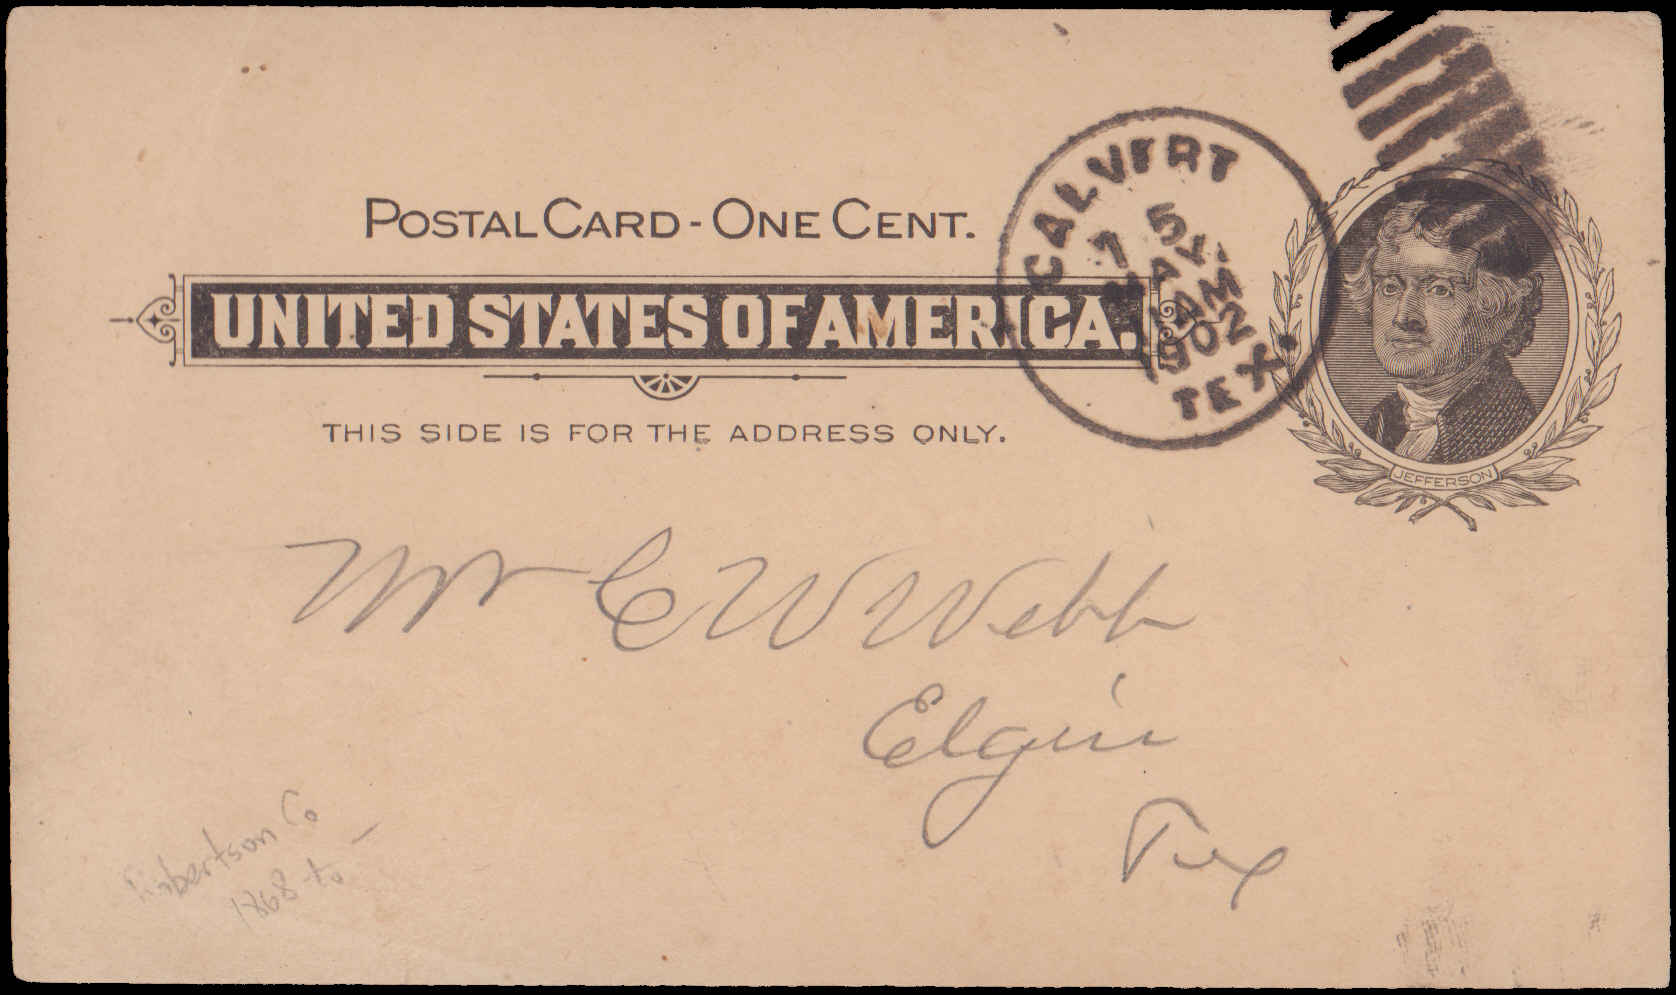 POSTAL CARD - ONE CENT.
UNITED STATES OF AMERICA.
THIS SIDE IS FOR THE ADDRESS ONLY.
CALVERT
5
AM
1902
TEX.
JEFFERSON
Mr C W Webb
Elgin
Tex
Robertson Co
1868 to –